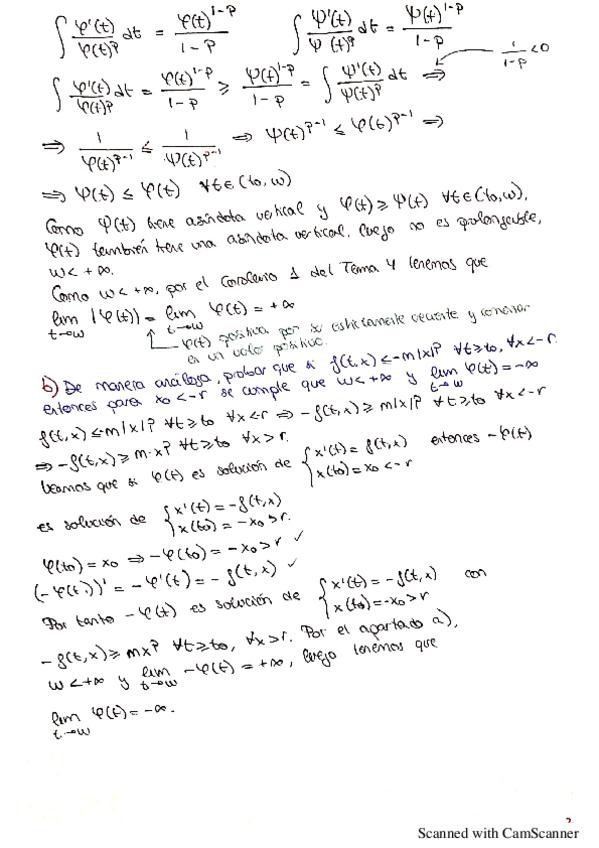 ∫ φ'(t)/φ(t)^p dt = φ(t)^{1-p}/(1-p)     ∫ ψ'(t)/ψ(t)^p dt = ψ(t)^{1-p}/(1-p)
∫ φ'(t)/φ(t)^p dt = φ(t)^{1-p}/(1-p) ≥ ψ(t)^{1-p}/(1-p) = ∫ ψ'(t)/ψ(t)^p dt ⇒     1/(1-p) < 0
⇒ 1/φ(t)^{p-1} ≤ 1/ψ(t)^{p-1} ⇒ ψ(t)^{p-1} ≤ φ(t)^{p-1} ⇒
⇒ ψ(t) ≤ φ(t) ∀t∈(t0, w)
Como ψ(t) tiene asíntota vertical y φ(t) ≥ ψ(t) ∀t∈(t0, w),
φ(t) también tiene una asíntota vertical, luego no es prolongable,
w < +∞.
Como w < +∞, por el Corolario 1 del Tema 4 tenemos que
lim_{t→w} |φ(t)| = lim_{t→w} φ(t) = +∞
φ(t) positiva por ser estrictamente creciente y comenzar
en un valor positivo.
b) De manera análoga, probar que si f(t,x) ≤ -m|x|^p ∀t≥t0, ∀x<-r
entonces para x0 < -r se cumple que w < +∞ y lim_{t→w} φ(t) = -∞
f(t,x) ≤ -m|x|^p ∀t≥t0 ∀x<-r ⇒ -f(t,x) ≥ m|x|^p ∀t≥t0 ∀x<-r
⇒ -f(t,x) ≥ m·x^p ∀t≥t0 ∀x>r.
Veamos que si φ(t) es solución de { x'(t) = f(t,x) x(t0) = x0 < -r entonces -φ(t)
es solución de { x'(t) = -f(t,x) x(t0) = -x0 > r.
φ(t0) = x0 ⇒ -φ(t0) = -x0 > r ✓
(-φ(t))' = -φ'(t) = -f(t,x) ✓
Por tanto -φ(t) es solución de { x'(t) = -f(t,x) x(t0) = -x0 > r con
-f(t,x) ≥ mx^p ∀t≥t0, ∀x>r. Por el apartado a),
w < +∞ y lim_{t→w} -φ(t) = +∞, luego tenemos que
lim_{t→w} φ(t) = -∞.
Scanned with CamScanner